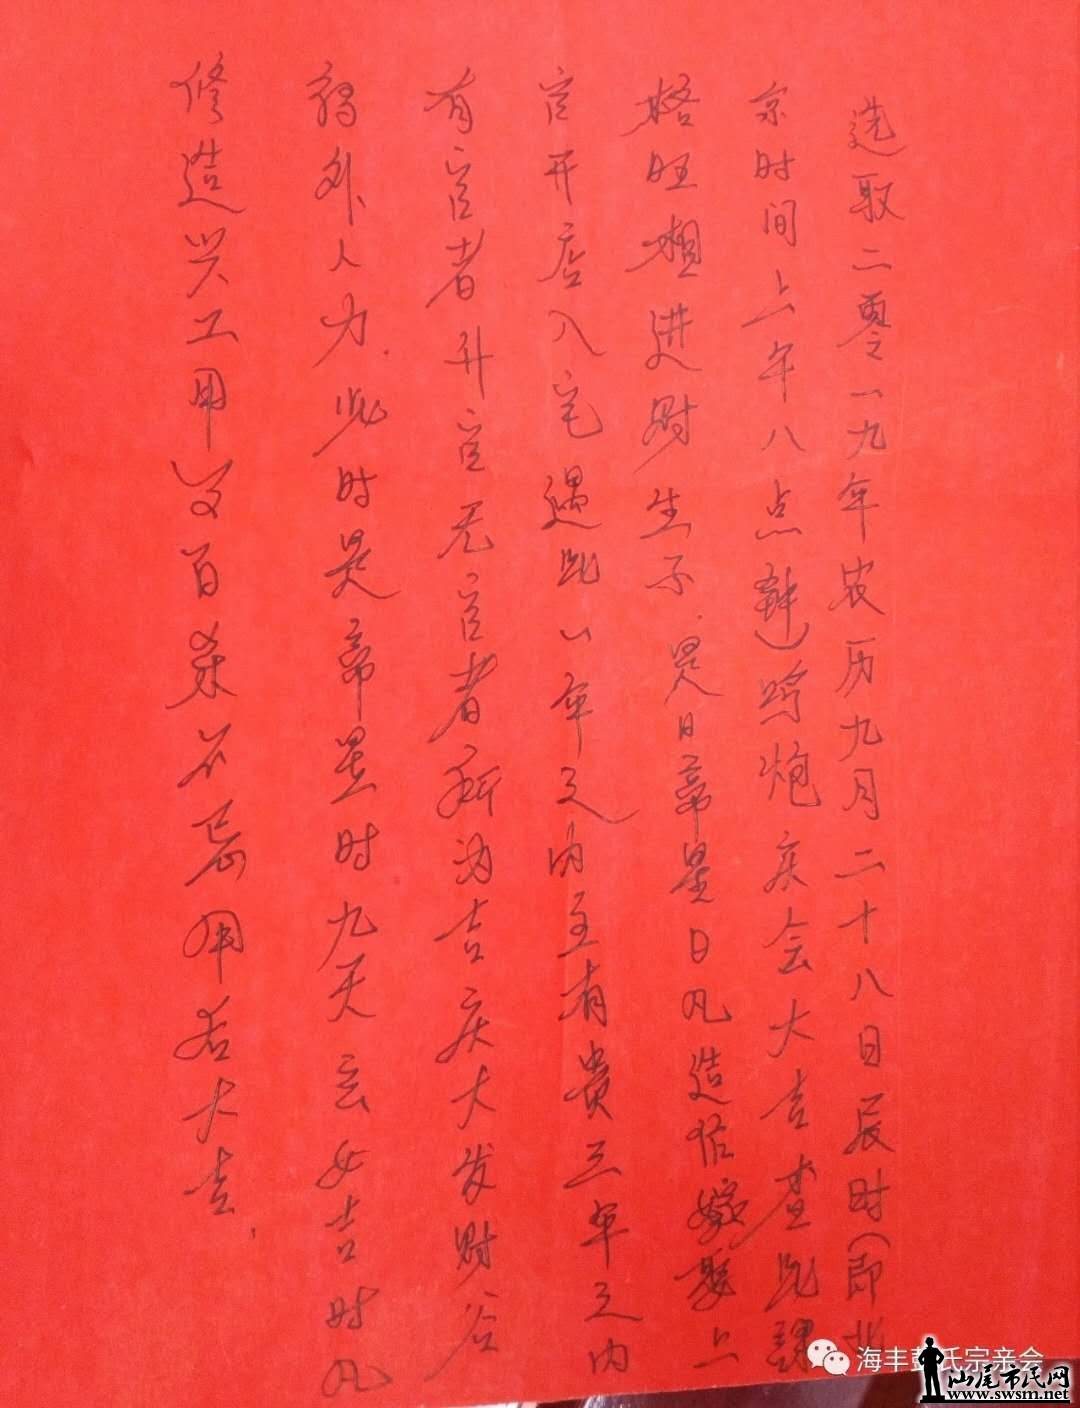 选取二零一九年农历九月二十八日辰时(即北
京时间上午八点钟)鸣炮庆会大吉查此課
格旺相进财生子.是日帝星日凡造作嫁娶上
官开店入宅遇此一年之内主有贵三年之内
有官者升官无官者稱为吉庆大发财谷
得外人力.此时是帝星时九天玄女吉时凡
修造兴工用百杀不忌用者大吉.
海丰彭氏宗亲会
汕尾市民网
www.swsm.net